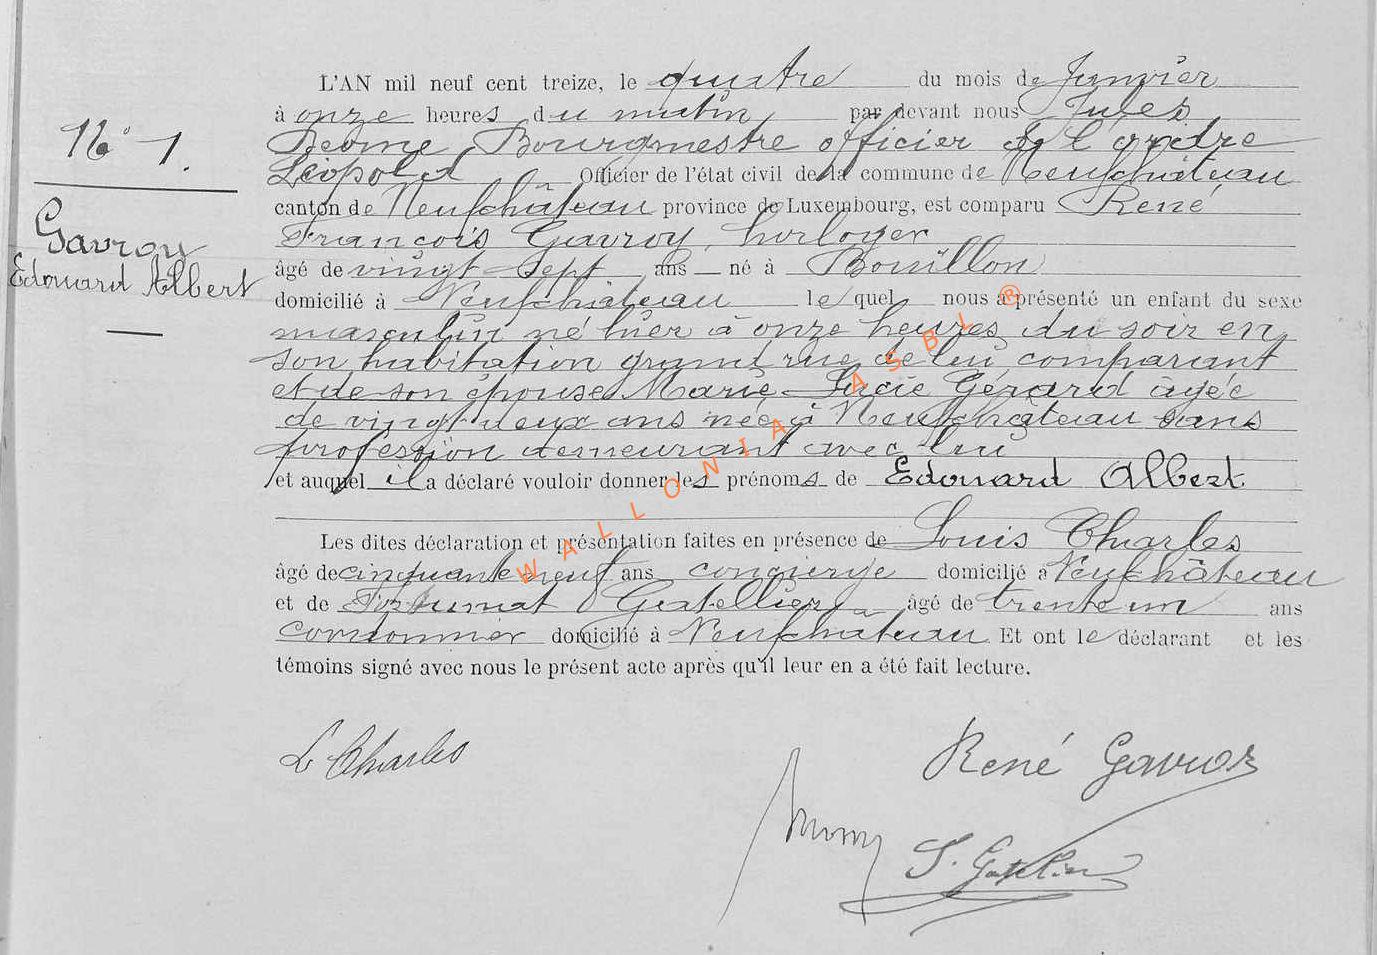 L'AN mil neuf cent treize, le quatre du mois de Janvier
à onze heures du matin par devant nous Jules
Bourgmestre officier de l'ordre
Léopold Officier de l'état civil de la commune de Neufchâteau
N° 1.
canton de Neufchâteau province de Luxembourg, est comparu René
Gavroy
François Gavroy, horloger
Edouard Albert
âgé de vingt sept ans né à Bouillon
domicilié à Neufchâteau le quel nous a présenté un enfant du sexe
masculin né hier à onze heures du soir en
son habitation grand rue de lui comparant
et de son épouse Marie Lucie Gérard agée
de vingt deux ans née à Neufchâteau sans
profession demeurant avec lui
et auquel il a déclaré vouloir donner les prénoms de Edouard Albert
Les dites déclaration et présentation faites en présence de Louis Charles
âgé de cinquante neuf ans concierge domicilié à Neufchâteau
et de Fortunat âgé de trente un ans
cordonnier domicilié à Neufchâteau Et ont le déclarant et les
témoins signé avec nous le présent acte après qu'il leur en a été fait lecture.
L Charles
René Gavroy
WALLONIA ASBL ®